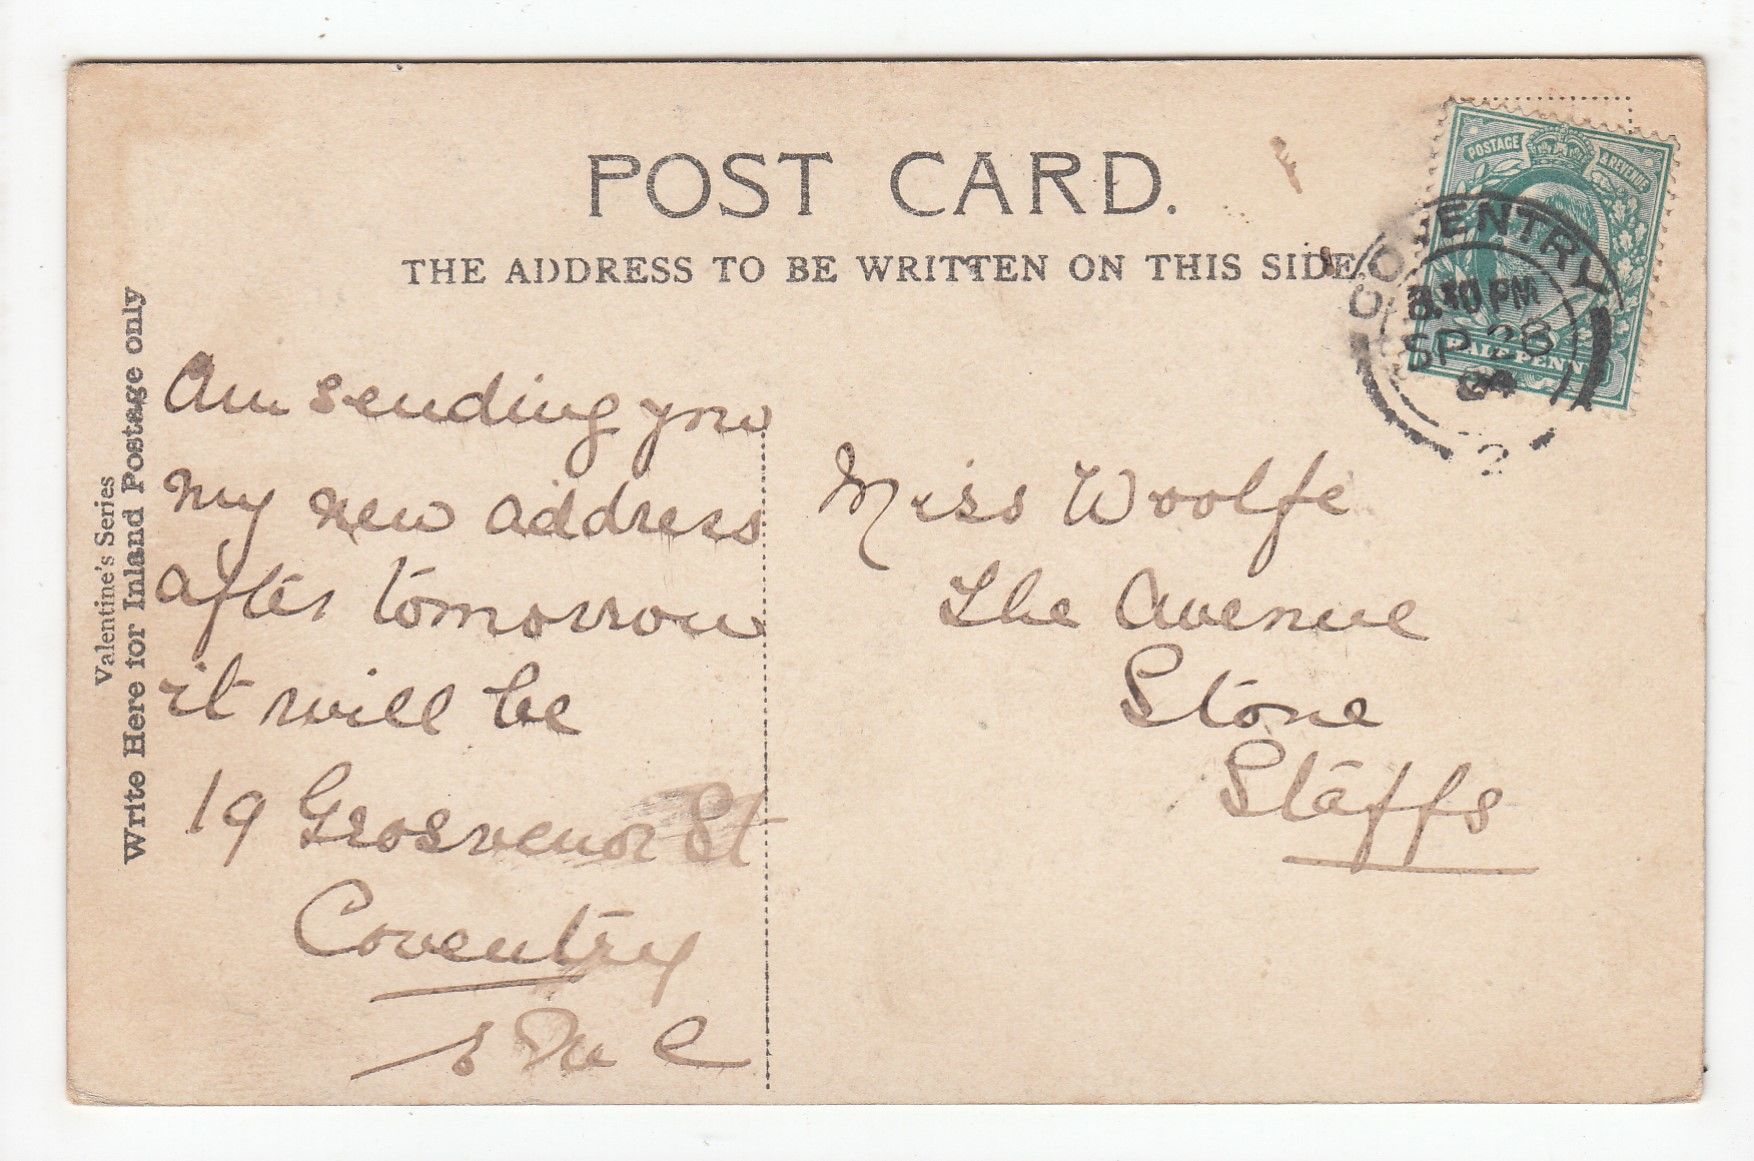 POST CARD.
THE ADDRESS TO BE WRITTEN ON THIS SIDE.
Valentine's Series
Write Here for Inland Postage only
POSTAGE & REVENUE
HALFPENNY
COVENTRY
PM
SP 28
04
2
Am sending you
my new address
after tomorrow
it will be
19 Grosvenor St
Coventry
Miss Woolfe
The Avenue
Stone
Staffs